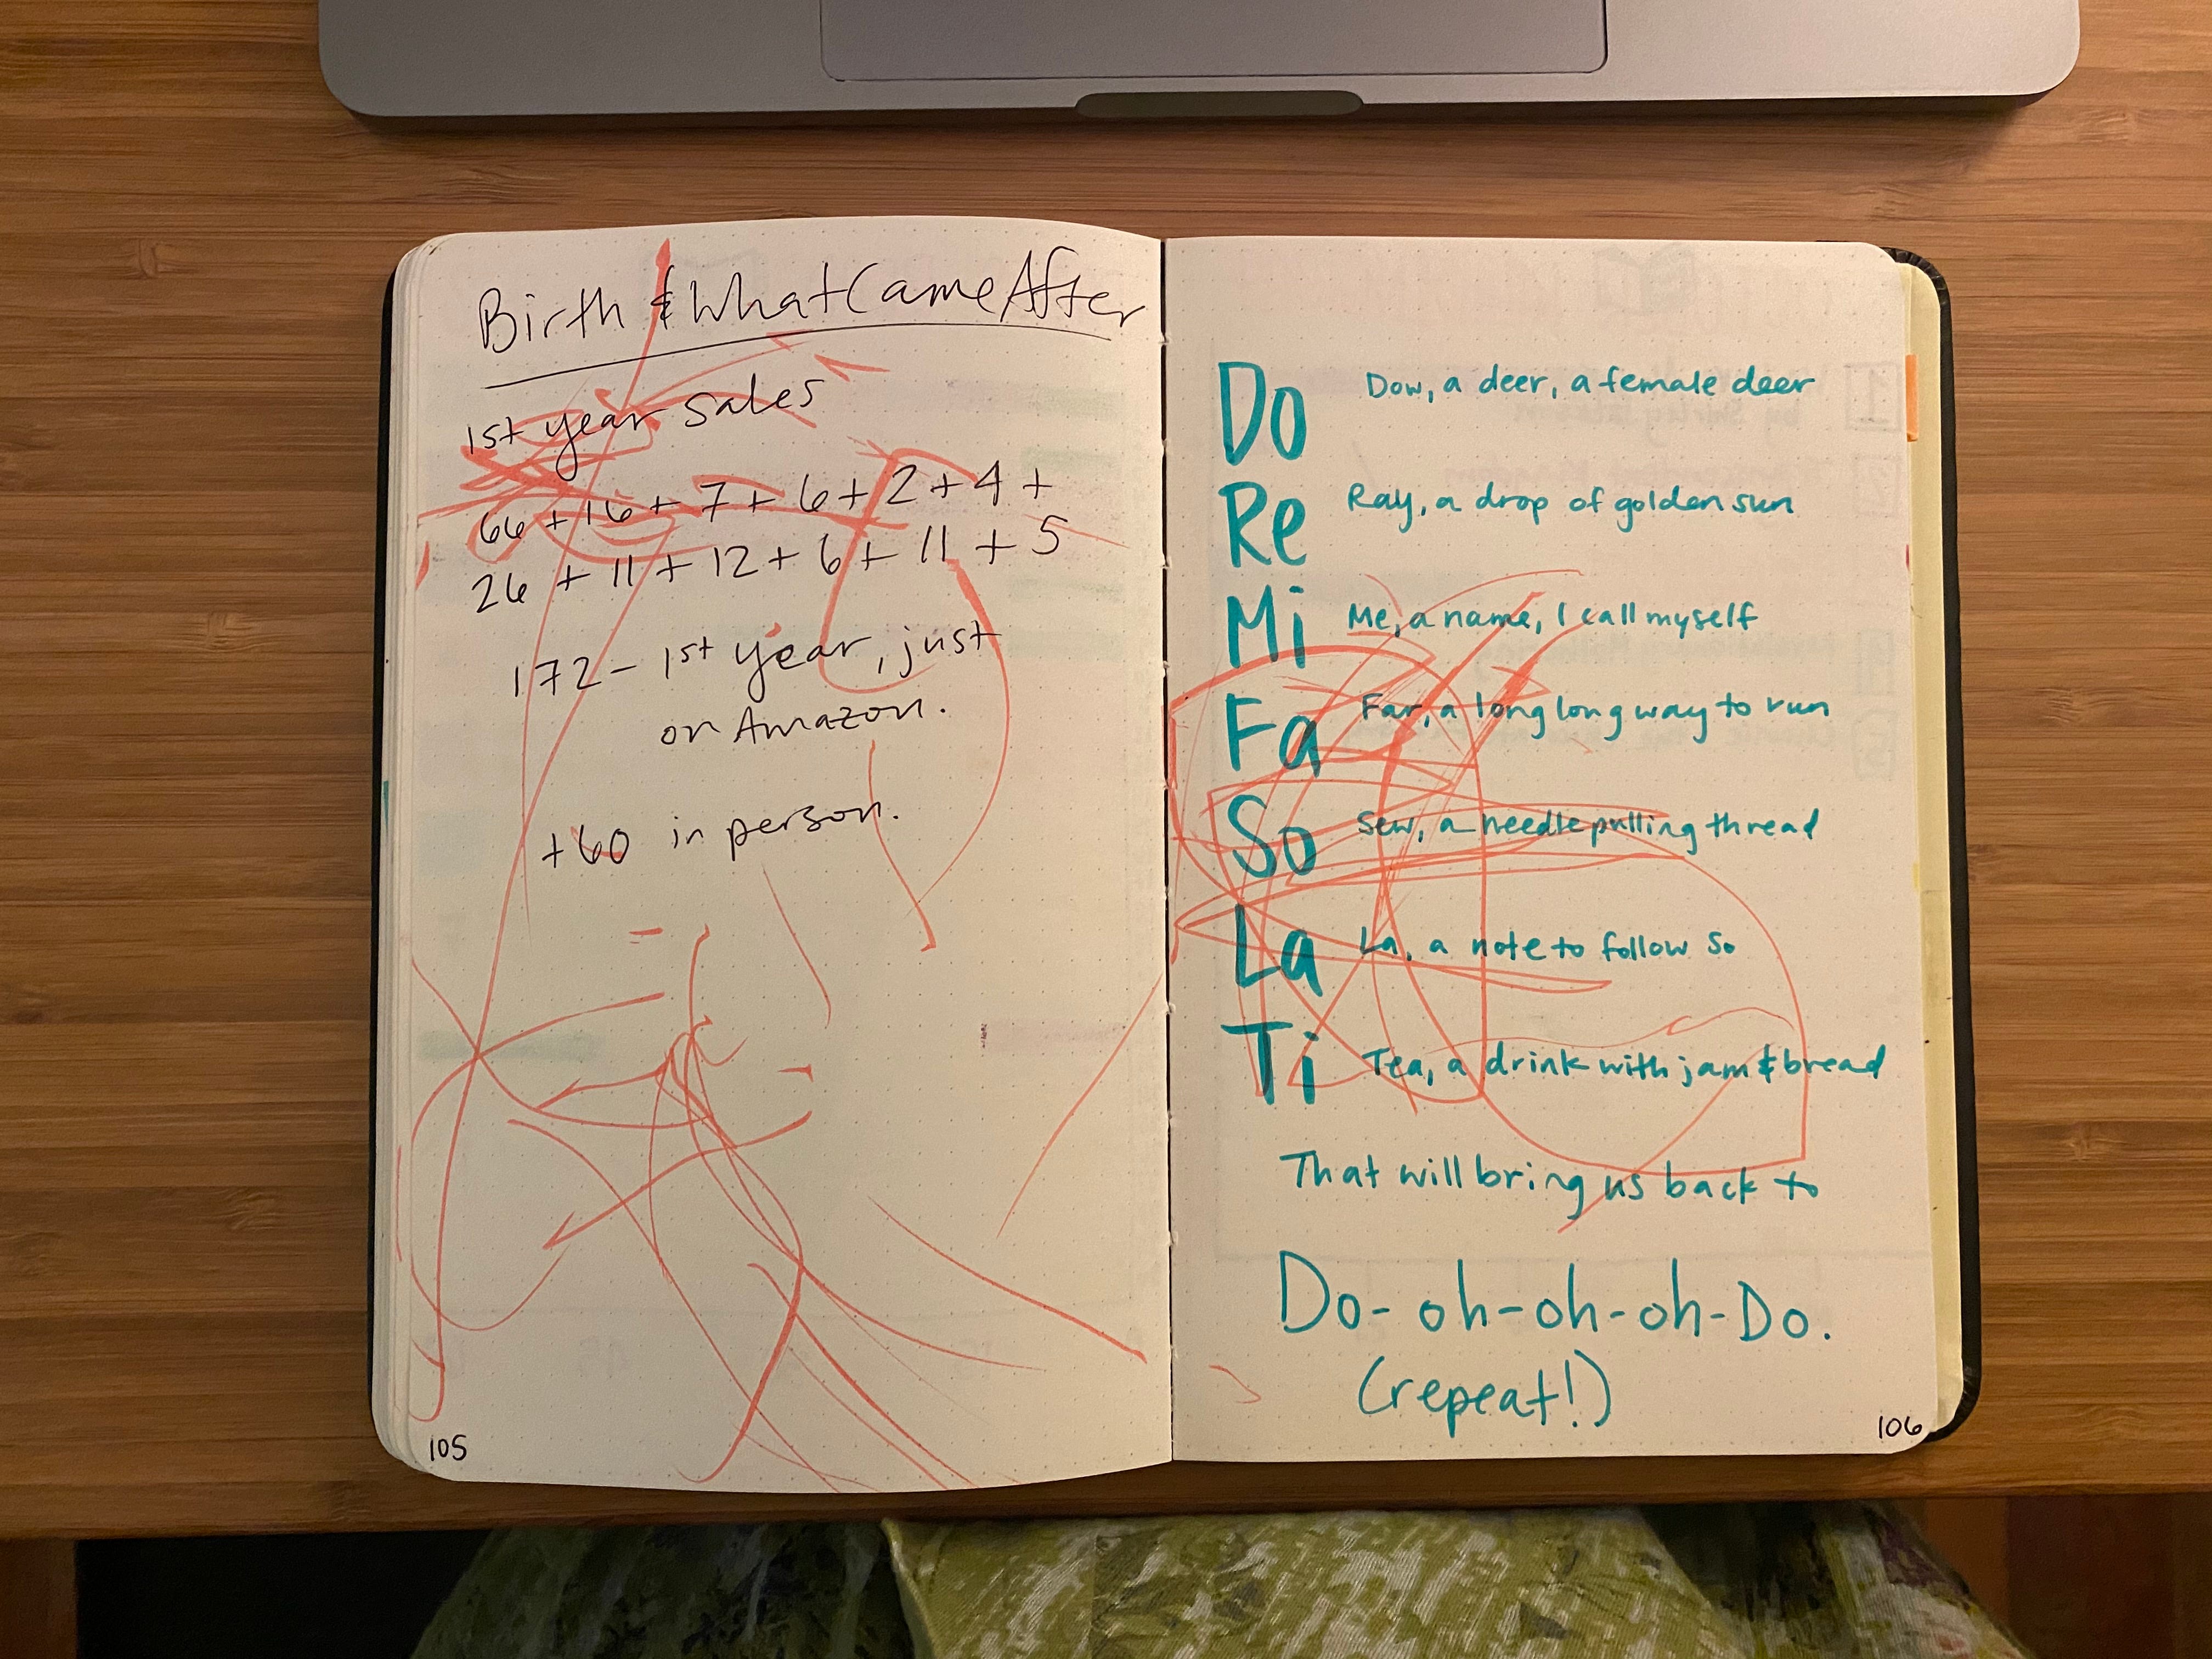 Birth & What Came After
1st year sales
66 + 16 + 7 + 6 + 2 + 4 +
26 + 11 + 12 + 6 + 11 + 5
172 - 1st year, just
on Amazon.
+60 in person.
105
Do Dow, a deer, a female deer
Re Ray, a drop of golden sun
Mi Me, a name, I call myself
Fa Far, a long long way to run
So Sew, a needle pulling thread
La La, a note to follow So
Ti Tea, a drink with jam & bread
That will bring us back to
Do-oh-oh-oh-Do.
(repeat!)
106